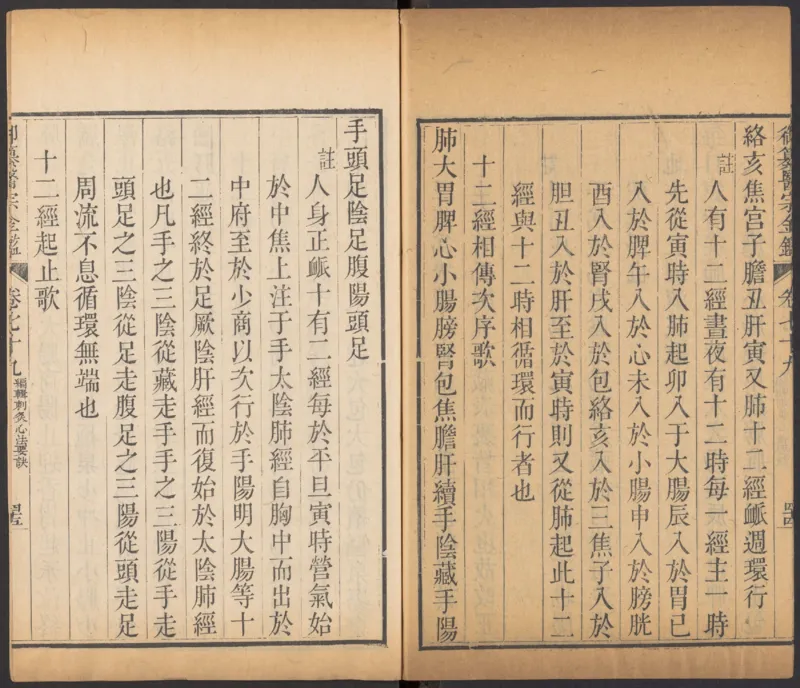 御纂醫宗金鑑 卷七十九
絡亥焦宮子膽丑肝寅又肺十二經衇週環行
註 人有十二經晝夜有十二時每一經主一時
先從寅時入肺起卯入于大腸辰入於胃巳
入於脾午入於心未入於小腸申入於膀胱
酉入於腎戌入於包絡亥入於三焦子入於
膽丑入於肝至於寅時則又從肺起此十二
經與十二時相循環而行者也
十二經相傳次序歌
肺大胃脾心小腸膀腎包焦膽肝續手陰藏手陽
手頭足陰足腹陽頭足
註 人身正衇十有二經每於平旦寅時營氣始
於中焦上注于手太陰肺經自胸中而出於
中府至於少商以次行於手陽明大腸等十
二經終於足厥陰肝經而復始於太陰肺經
也凡手之三陰從藏走手手之三陽從手走
頭足之三陰從足走腹足之三陽從頭走足
周流不息循環無端也
十二經起止歌
御纂醫宗金鑑 卷七十九 編輯刺灸心法要訣